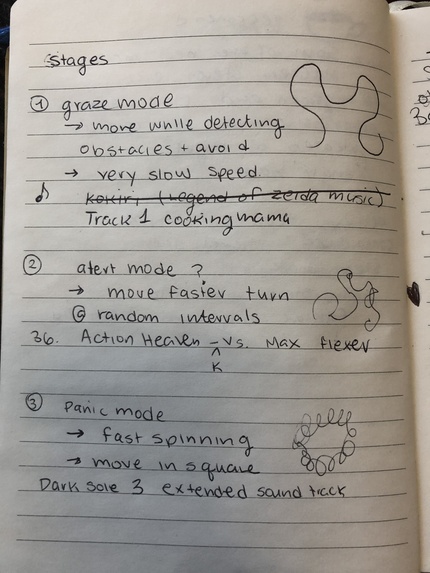 stages
① graze mode
→ move while detecting
obstacles + avoid
→ very slow speed.
♪ kokiri (Legend of zelda music)
Track 1 cooking mama
② alert mode ?
→ move faster turn
@ random intervals
36. Action Heaven - vs. Max flexer
^
K
③ Panic mode
→ fast spinning
→ move in square
Dark sole 3 extended sound track